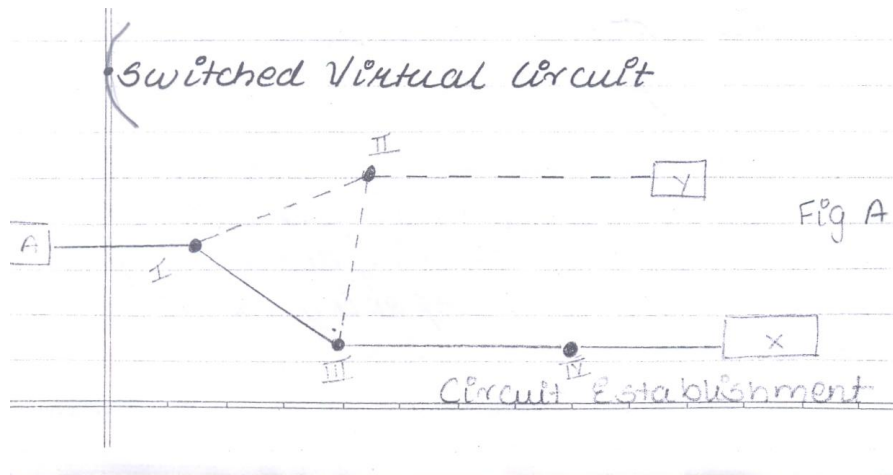 Switched Virtual Circuit
II
Y
Fig A
A
I
X
III
IV
Circuit Establishment